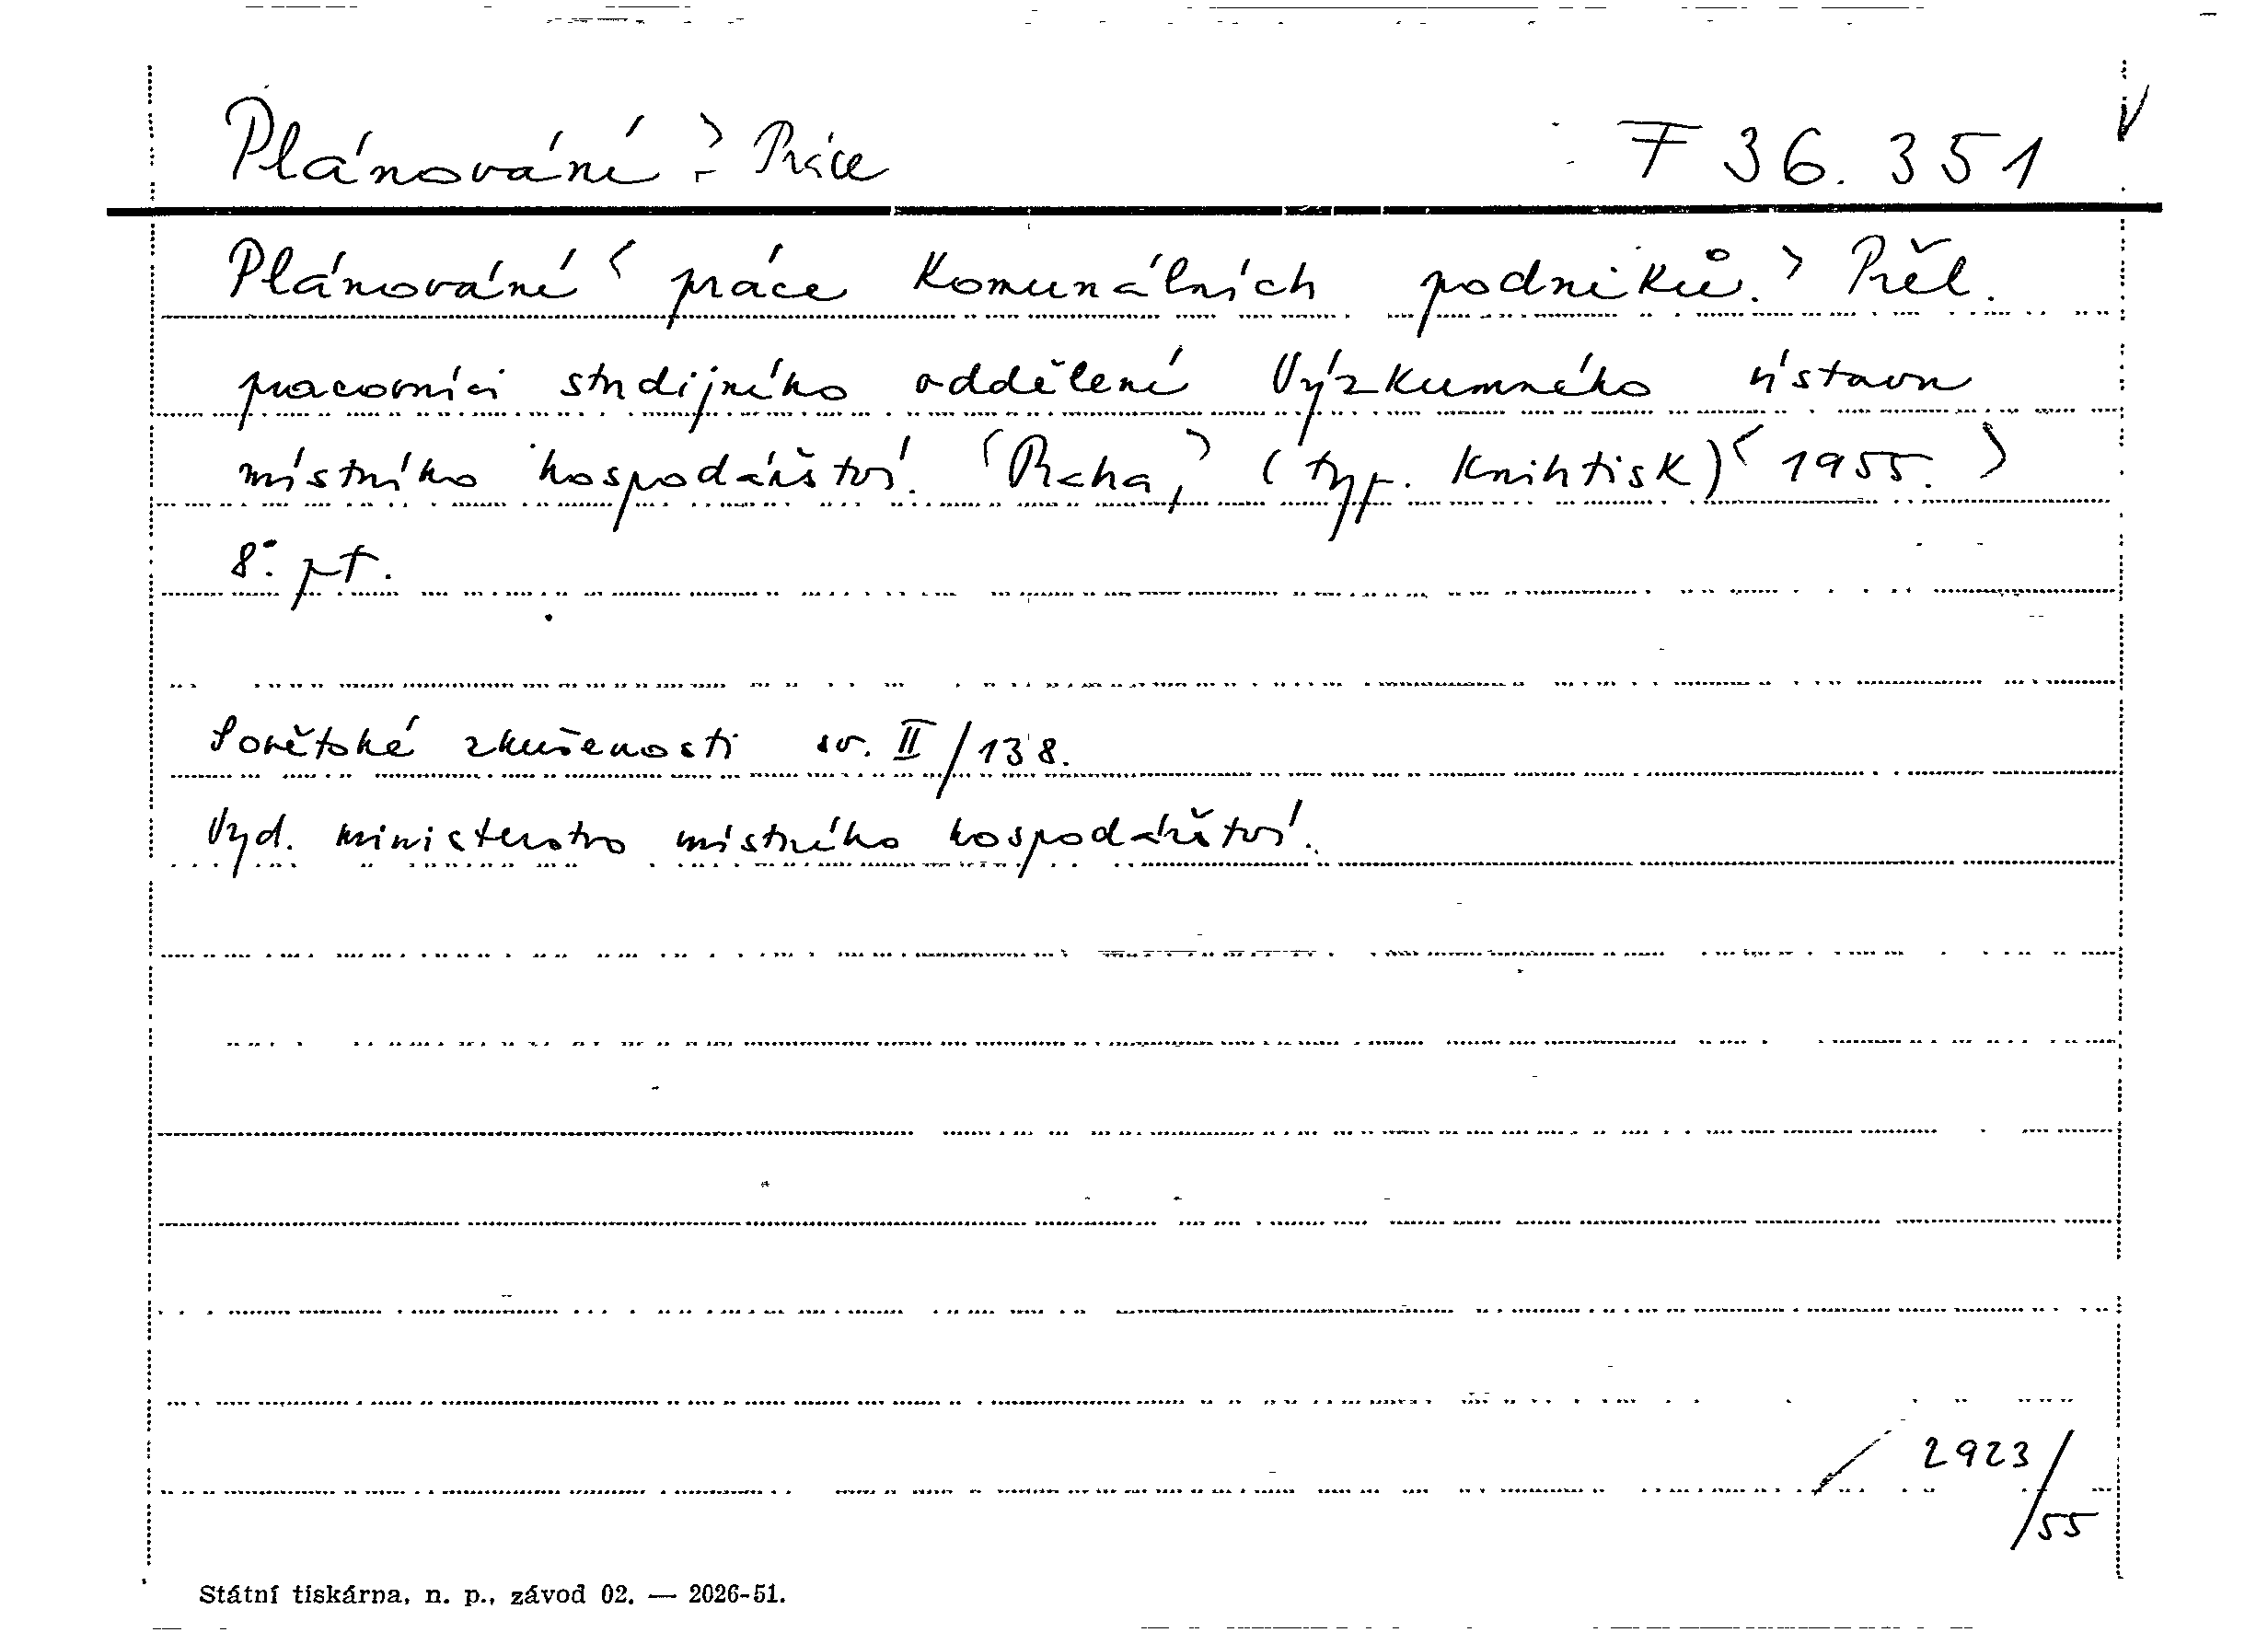 Plánování : Práce F 36.351 V
Plánování < práce komunálních podniků. > Přel.
pracovníci studijního oddělení Výzkumného ústavu
místního hospodářství. <Praha, > (typ. Knihtisk) < 1955. >
8°. pt.
Sovětské zkušenosti sv. II/138.
Vyd. ministerstvo místního hospodářství.
2923/55
Státní tiskárna, n. p., závod 02. — 2026-51.